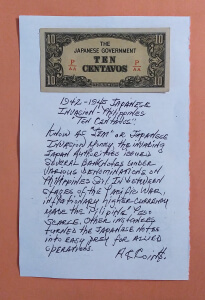 10 THE 10
JAPANESE GOVERNMENT
P TEN P
CENTAVOS
10 10
1942-1945 JAPANESE
INVASION - PHILIPPINES
"TEN CENTAVOS"
KNOW AS "JIM" OR JAPANESE
INVASION MONEY, THE INVADING
JAPAN AUTHORITIES ISSUED
SEVERAL BANKNOTES UNDER
VARIOUS DENOMINATIONS ON
PHILIPPINES SOIL IN
STAGES OF THE PACIFIC WAR,
INFLATIONARY HIGHER CURRENCY
MADE THE PILIPINE PESO
SCARCE. OTHER INSTANCES
TURNED THE JAPANESE NOTES
INTO EASY PREY FOR ALLIED
OPERATIONS.